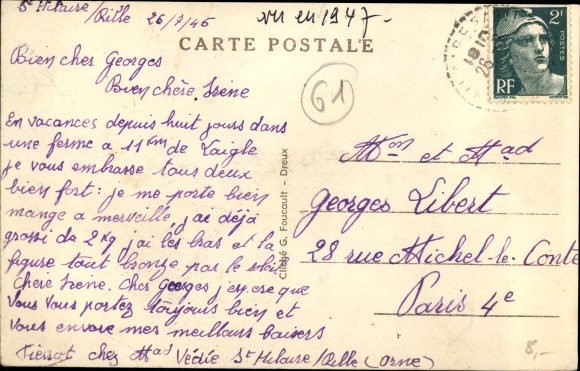 St Hilaire
/Rille 26/7/46
vu en 1947-
CARTE POSTALE
Bien cher Georges
Bien chère Irène
En vacances depuis huit jours dans
une ferme a 11 Km de Laigle
je vous embrasse tous deux
bien fort: je me porte bien
mange a merveille, j'ai déjà
grossi de 2 Kg j'ai les bras et la
figure tout bronzé par le soleil
Chère Irène. Cher Georges j'espère que
Vous Vous portez toujours bien et
Vous envoie mes meilleurs baisers
Pierrot chez Mad Védie St Hilaire/Rille (Orne)
61
Cliché G. Foucault - Dreux
2F
POSTES
RF
Mon et Mad
Georges Libert
28 rue Michel-le-Conte
Paris 4e
8,-